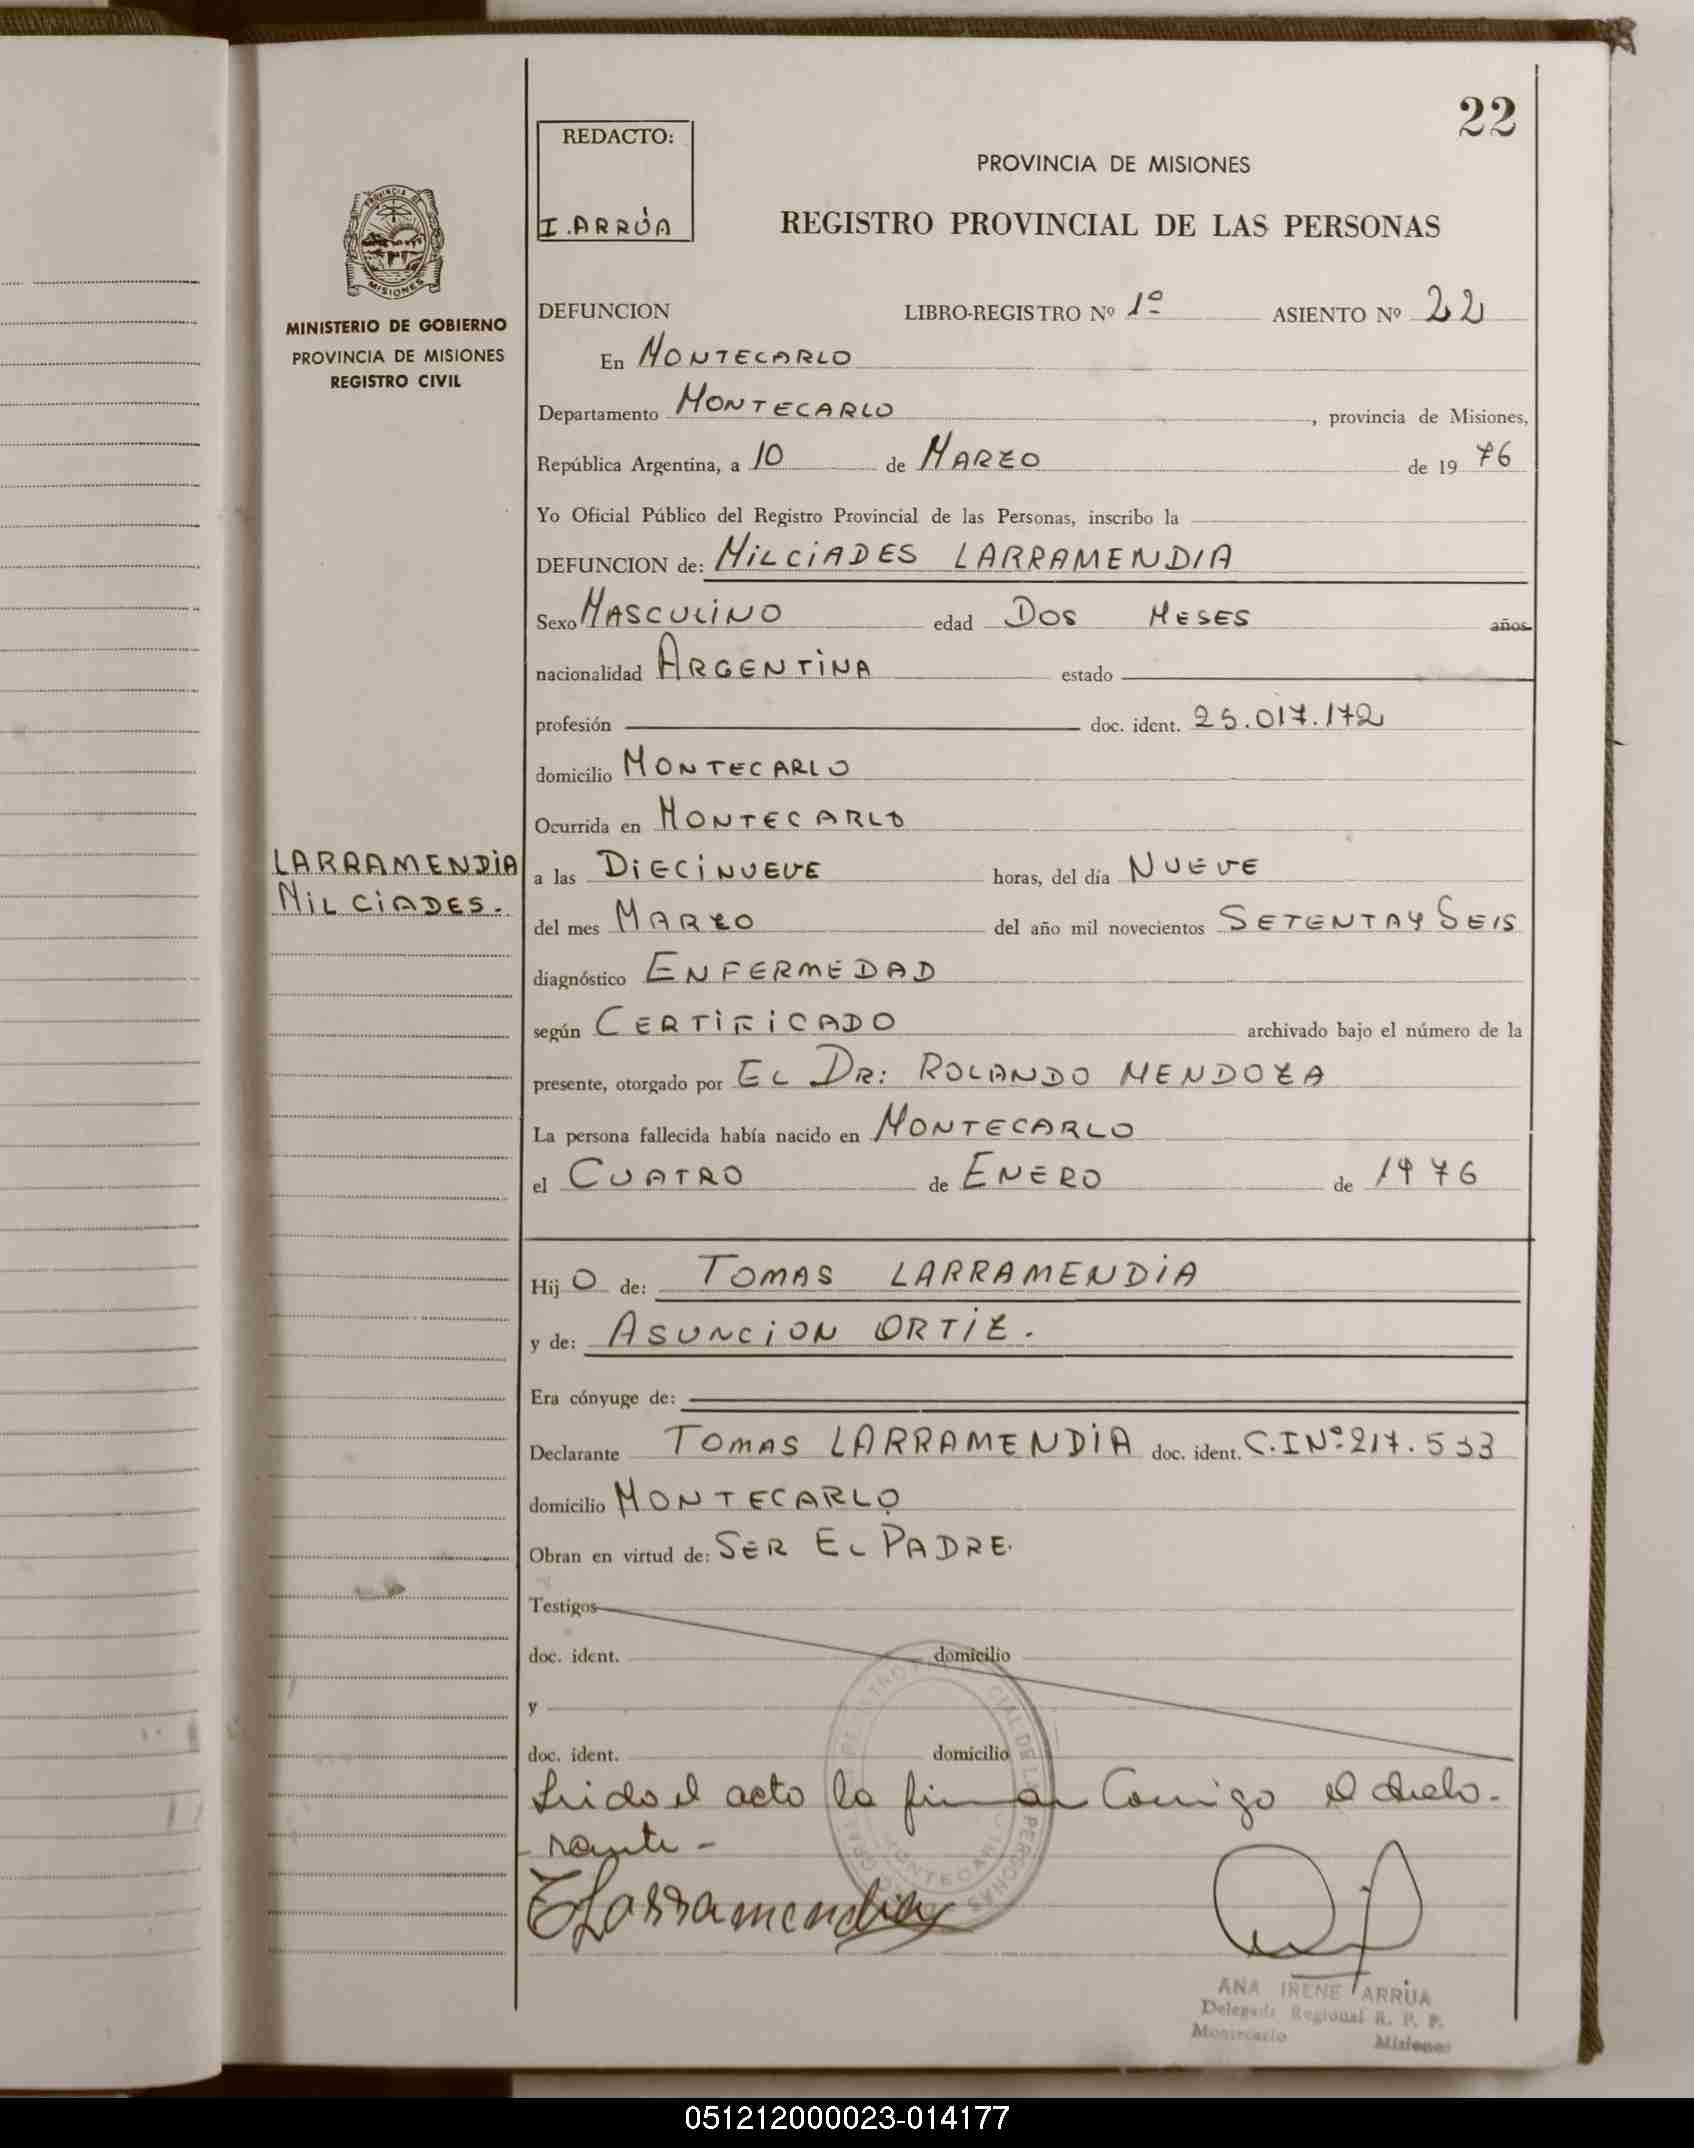 22
REDACTO:
I. ARRÚA
PROVINCIA DE MISIONES
REGISTRO PROVINCIAL DE LAS PERSONAS
PROVINCIA DE
MISIONES
MINISTERIO DE GOBIERNO
PROVINCIA DE MISIONES
REGISTRO CIVIL
DEFUNCION LIBRO-REGISTRO Nº 1º ASIENTO Nº 22
En MONTECARLO
Departamento MONTECARLO, provincia de Misiones,
República Argentina, a 10 de MARZO de 19 76
Yo Oficial Público del Registro Provincial de las Personas, inscribo la
DEFUNCION de: MILCIADES LARRAMENDIA
Sexo MASCULINO edad DOS MESES años
nacionalidad ARGENTINA estado
profesión doc. ident. 25.017.172
domicilio MONTECARLO
Ocurrida en MONTECARLO
LARRAMENDIA
MILCIADES.
a las DIECINUEVE horas, del día NUEVE
del mes MARZO del año mil novecientos SETENTA Y SEIS
diagnóstico ENFERMEDAD
según CERTIFICADO archivado bajo el número de la
presente, otorgado por EL DR: ROLANDO MENDOZA
La persona fallecida había nacido en MONTECARLO
el CUATRO de ENERO de 1976
Hij O de: TOMAS LARRAMENDIA
y de: ASUNCION ORTIZ.
Era cónyuge de:
Declarante TOMAS LARRAMENDIA doc. ident. C.I Nº 217.533
domicilio MONTECARLO
Obran en virtud de: SER EL PADRE.
Testigos
doc. ident. domicilio
y
doc. ident. domicilio
Leido el acto la firman Conmigo el decla-
rante -
T Larramendia
ANA IRENE ARRÚA
Delegada Regional R. P. P.
Montecarlo Misiones
051212000023-014177